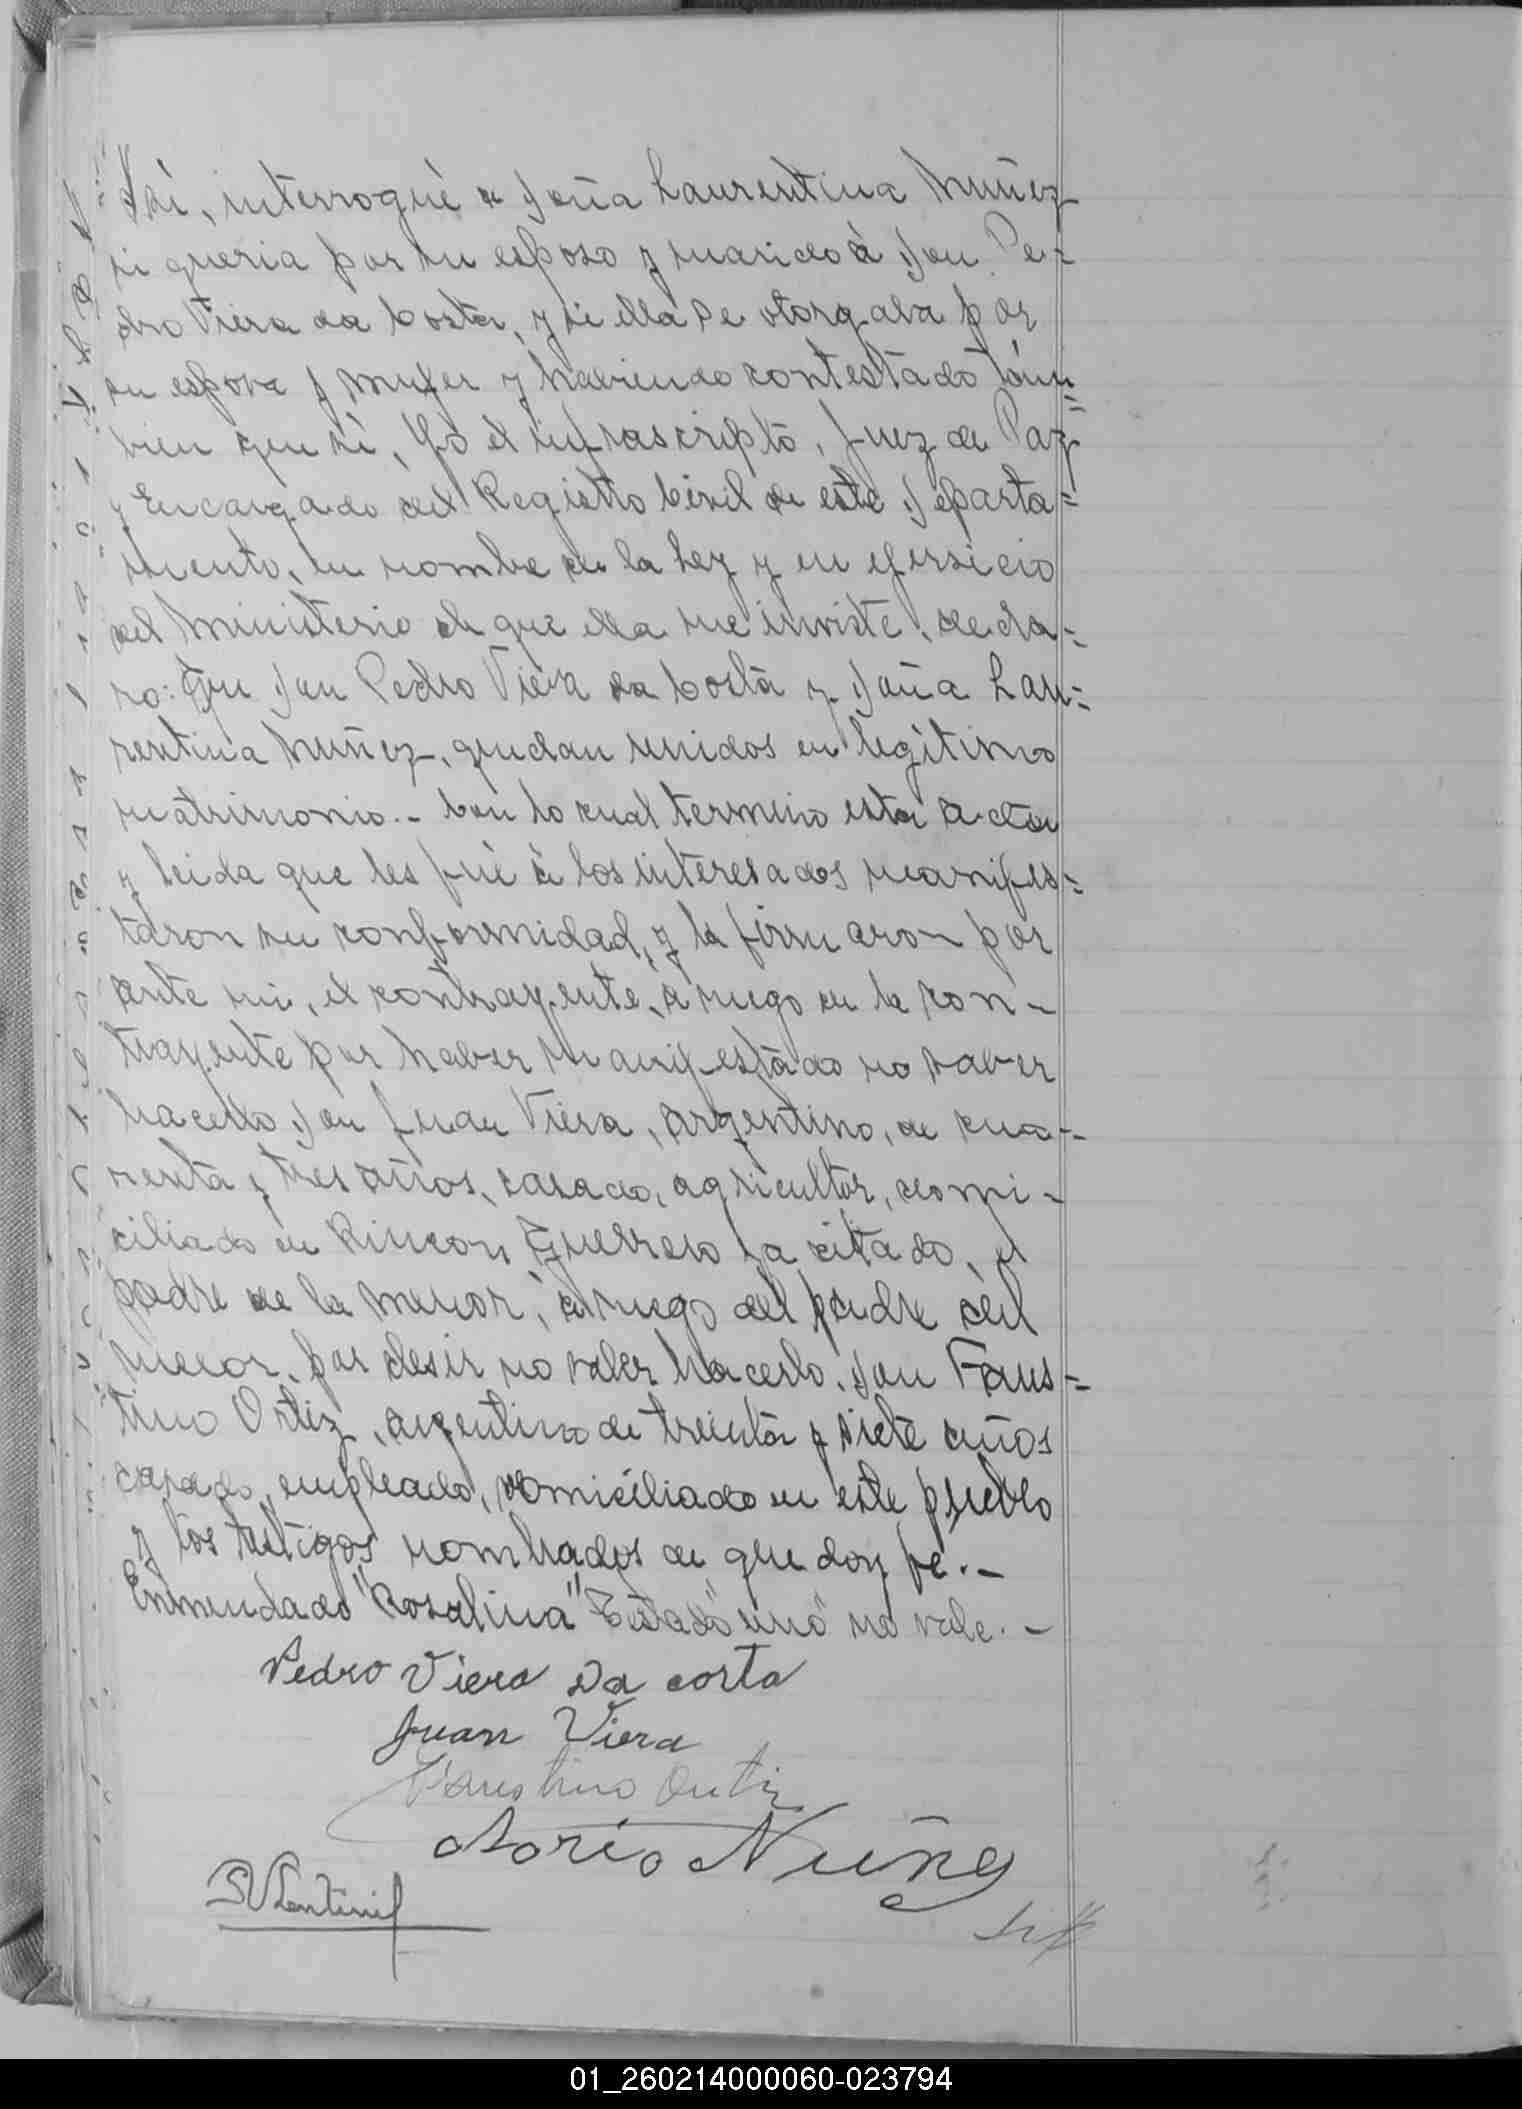 si, interrogué a Doña Laurentina Nuñez
si queria por su esposo y marido à Don Pe=
dro Viera da Costa, y si ella se otorgaba por
su esposa y mujer y habiendo contestado tam=
bien que si, Yo el infrascripto, Juez de Paz
y Encargado del Registro Civil de este Departa=
mento, en nombre de la Ley y en ejersicio
del Ministerio de que ella me inviste, decla=
ro: Que Don Pedro Viera da Costa y Doña Lau=
rentina Nuñez, quedan unidos en legítimo
matrimonio.- Con lo cual termino esta acta
y leida que les fué à los interesados manifes=
taron su conformidad, y la firmaron por
ante mi, el contrayente, à ruego de la con-
trayente por haber manifestado no saber
hacerlo Don Juan Viera, argentino, de cua-
renta y tres años, casado, agricultor, domi-
ciliado en Rincon Guerrero ya citado, el
padre de la menor, à ruego del padre del
menor, por desir no saber hacerlo, Don Faus=
tino Ortiz, argentino de treinta y siete años
casado, empleado, domiciliado en este pueblo
y los testigos nombrados de que doy fe.-
Enmendado "Rosalina" Testado "uno" no vale.-
Pedro Viera Da costa
Juan Viera
Faustino Ortiz
Nuñez
01_260214000060-023794